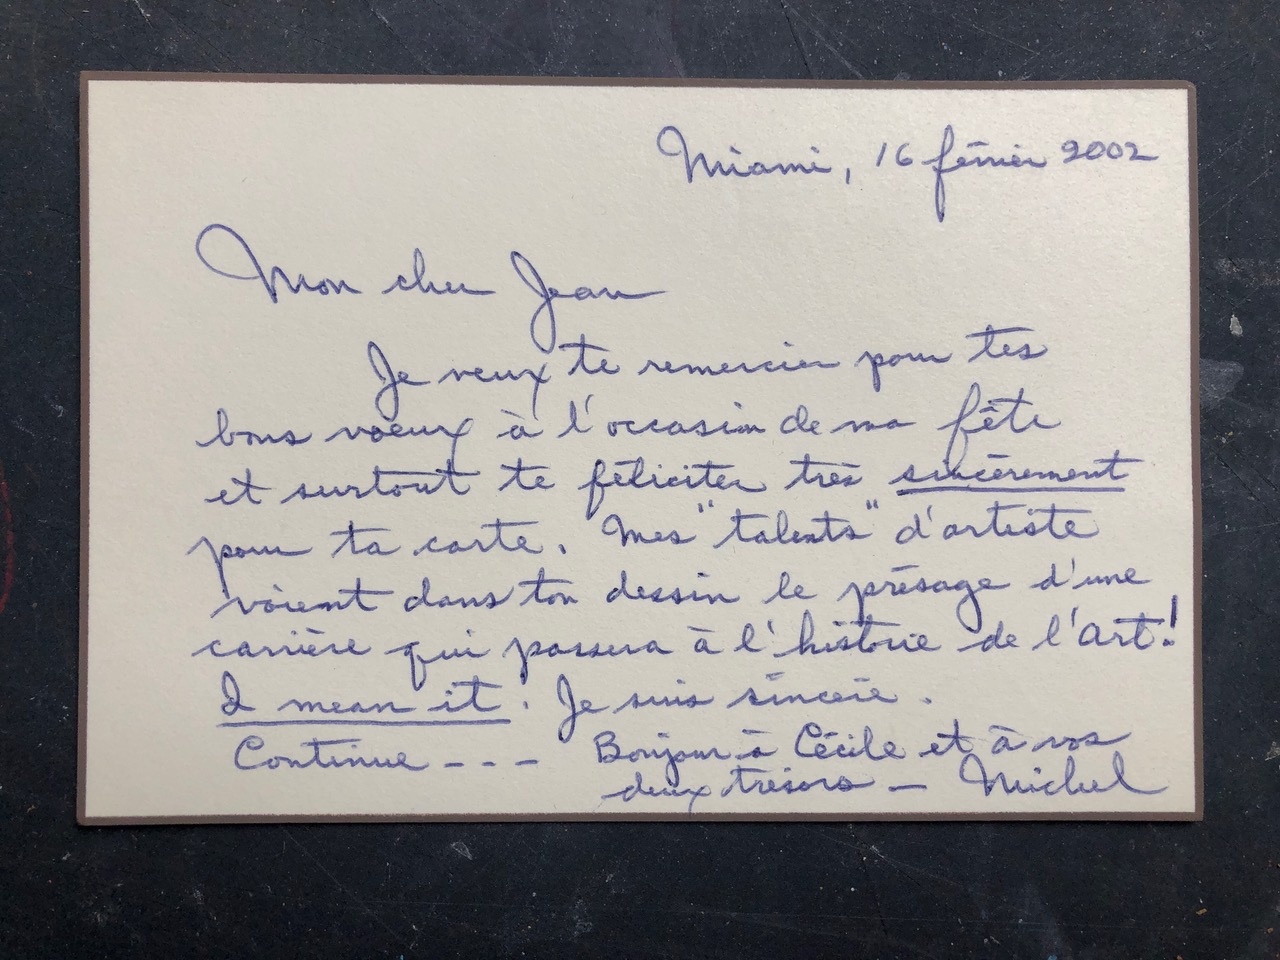 Miami, 16 février 2002
Mon cher Jean
Je veux te remercier pour tes
bons voeux à l'occasion de ma fête
et surtout te féliciter très sincèrement
pour ta carte. Mes "talents" d'artiste
voient dans ton dessin le présage d'une
carrière qui passera à l'histoire de l'Art!
I mean it. Je suis sincère.
Continue --- Bonjour à Cécile et à vos
deux trésors — Michel